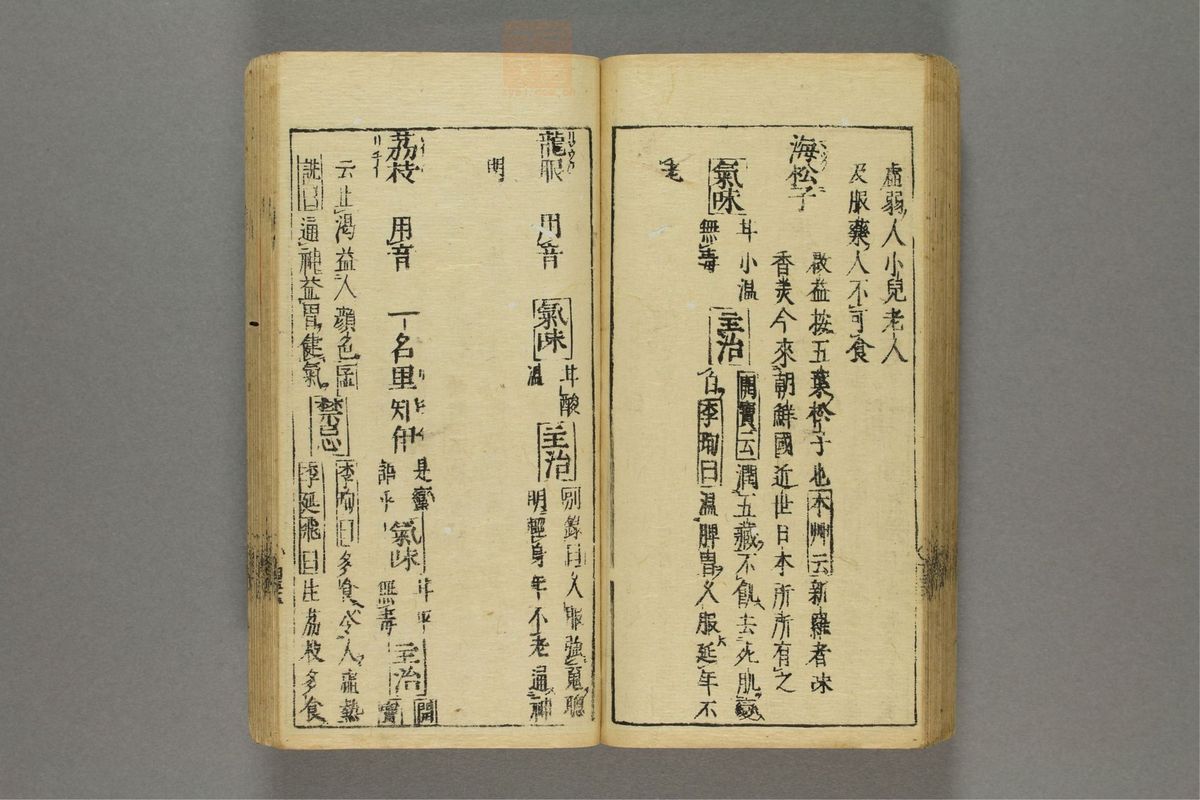 虛弱人小兒老人
及服藥人不可食
海松子
啟益按五葉松子也本艸云新羅者味
香美今來朝鮮國近世日本所所有之
氣味 甘小溫
無毒 主治 開寶云潤五藏不飢去死肌
李珣曰溫脾胃久服延年不
老
龍眼 用音 氣味 甘酸
溫 主治 別錄曰久服強魂聰
明輕身年不老通神
明
荔枝 用音 一名里知伊 是蠻
語乎 氣味 甘平
無毒 主治 開
寶
云止渴益人顏色孟
詵曰通神益胃健氣 禁忌 李珣曰多食令人虛熱
李延飛曰生荔枝多食